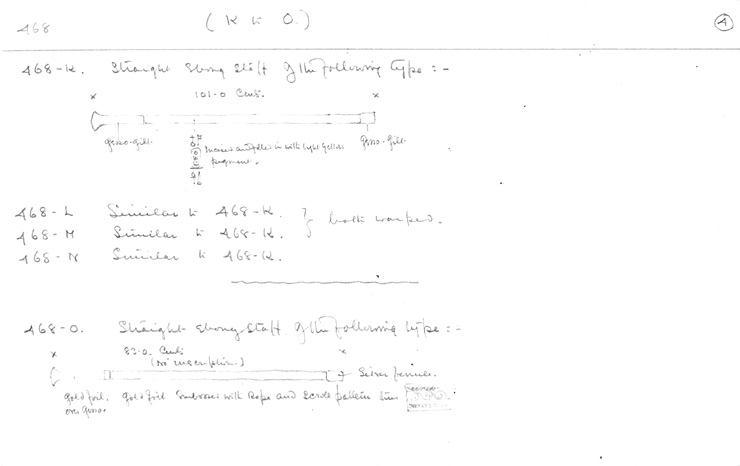 468 (K to O.) 4
468-K. Straight Ebony Staff of the following type :-
x 101.0 Cents. x
gesso-gilt. Incised and filled in with light yellow gesso-gilt.
pigment.
468-L Similar to 468-K. } both warped.
468-M Similar to 468-K.
468-N Similar to 468-K.
468-O. Straight ebony staff of the following type :-
x 83.0. Cents x
(No inscription.) Silver ferrule.
Gold foil. gold foil embossed with Rope and Scroll pattern thus
over gesso.